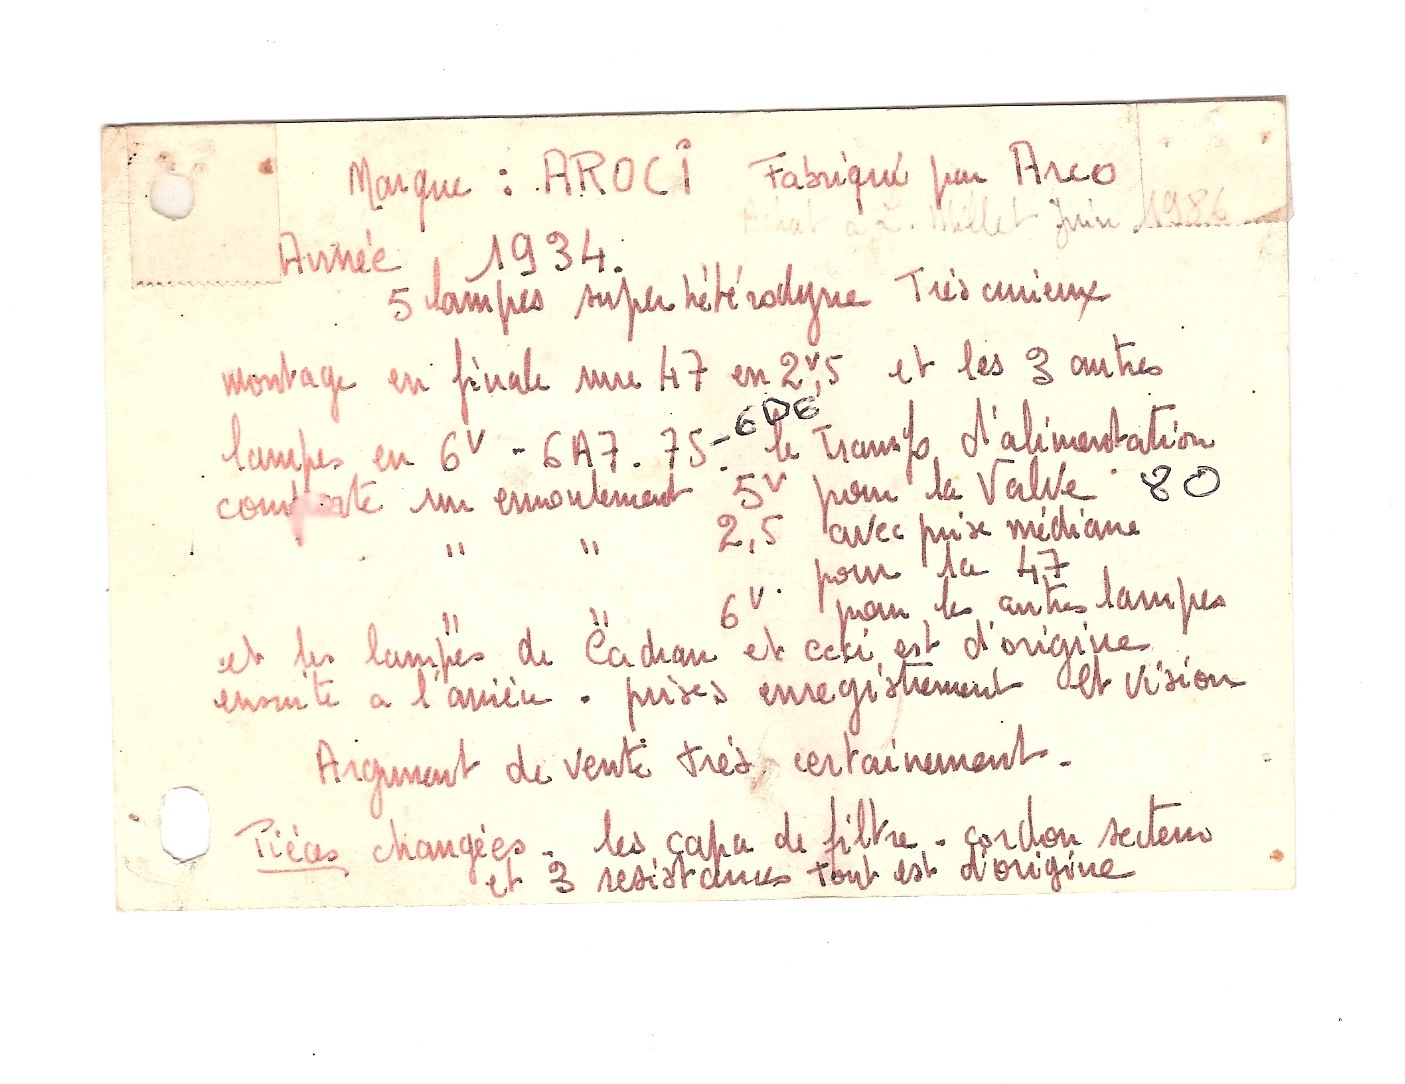 Marque : AROCÎ Fabriqué par Arco
Achat à L. Millet Juin 1986
Année 1934.
5 lampes super hétérodyne Très curieux
montage en finale une 47 en 2v,5 et les 3 autres
lampes en 6v - 6A7. 75 - 6D6 le Transfo d'alimentation
comporte un enroulement 5v pour la Valve 80
" " 2,5 avec prise médiane
pour la 47
" " 6v. pour les autres lampes
et les lampes de Cadran et ceci est d'origine
ensuite a l'arrière . prises enregistrement et vision
Argument de vente très certainement.
Pièces changées - les capa de filtre - cordon secteur
et 3 resistances tout est d'origine